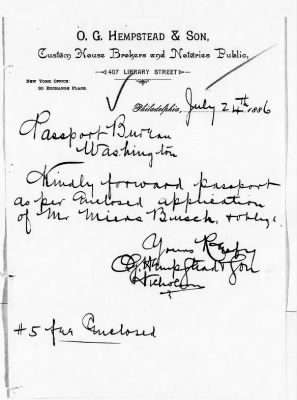 O. G. HEMPSTEAD & SON,
Custom House Brokers and Notaries Public,
407 LIBRARY STREET
NEW YORK OFFICE:
20 EXCHANGE PLACE.
Philadelphia, July 24th 1886
Passport Bureau
Washington
Kindly forward passport
as per Enclosed application
of Mr Busch,
Yours
O.G. Hempstead & Son
Nicholson
#5 Enclosed